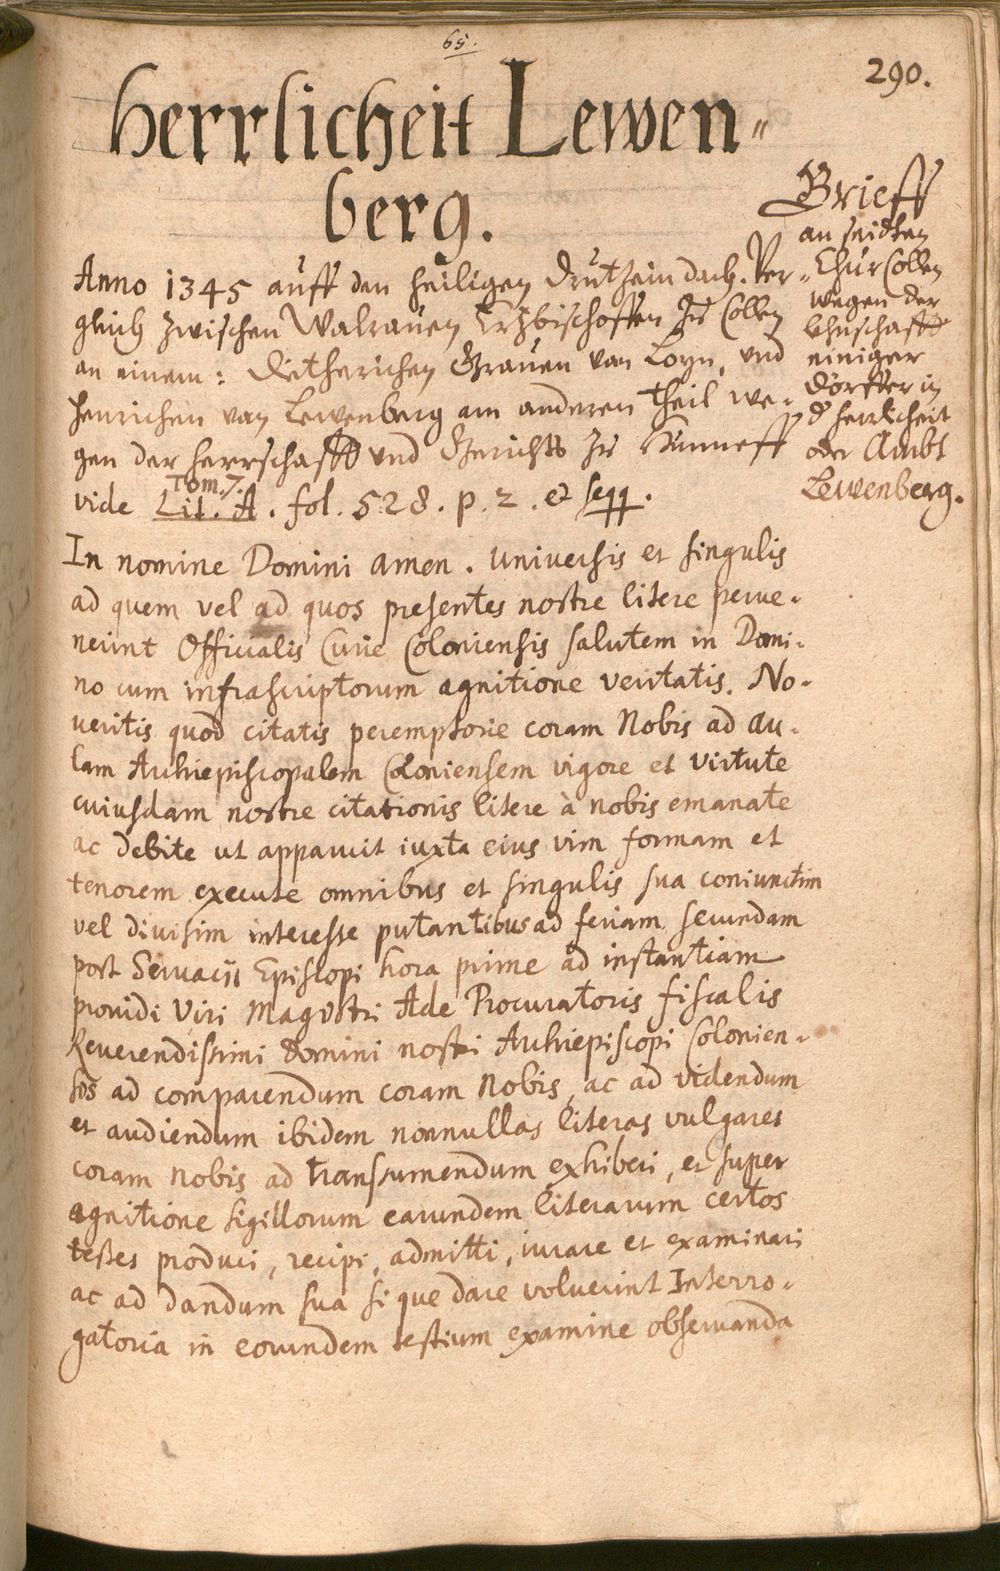 65.
290.
Herrlicheit Lewen"
berg.
Brieff
an seidten
ChurCollen
wegen der
Lehnschafft
einiger
Dörffer in
d herrlicheit
oder Ambt
Lewenberg.
Anno 1345 auff den heiligen Drutzein dach. Ver-
glich zwischen Walrauen Ertzbischoffen zu Collen
an einem: Dietherichen Grauen van Loyn, vnd
Henrichen van Lewenberg am anderen Theil we-
gen der herrschafft vnd Gerichts zu Hunneff
Tom. 7.
vide Lit. A. fol. 528. p. 2. et seqq.
In nomine Domini amen. Universis et singulis
ad quem vel ad quos presentes nostre litere perue-
nerint Officialis Curie Coloniensis salutem in Domi-
no cum infrascriptorum agnitione veritatis. No-
veritis quod citatis peremptorie coram Nobis ad au-
lam Archiepiscopalem Coloniensem vigore et virtute
cuiusdam nostre citationis litere à nobis emanate
ac debite ut apparuit iuxta eius vim formam et
tenorem execute omnibus et singulis sua coniunctim
vel diuisim interesse putantibus ad feriam secundam
post Servacii Episcopi hora prime ad instantiam
prouidi Viri Magistri Ade Procuratoris fiscalis
Reuerendissimi domini nostri Archiepiscopi Colonien-
sis ad comparendum coram Nobis, ac ad videndum
et audiendum ibidem nonnullas literas vulgares
coram nobis ad transsumendum exhiberi, et super
agnitione sigillorum earundem literarum certos
testes produci, recipi, admitti, iurare et examinari
ac ad dandum sua si que dare voluerint Interro-
gatoria in eorundem testium examine obseruanda